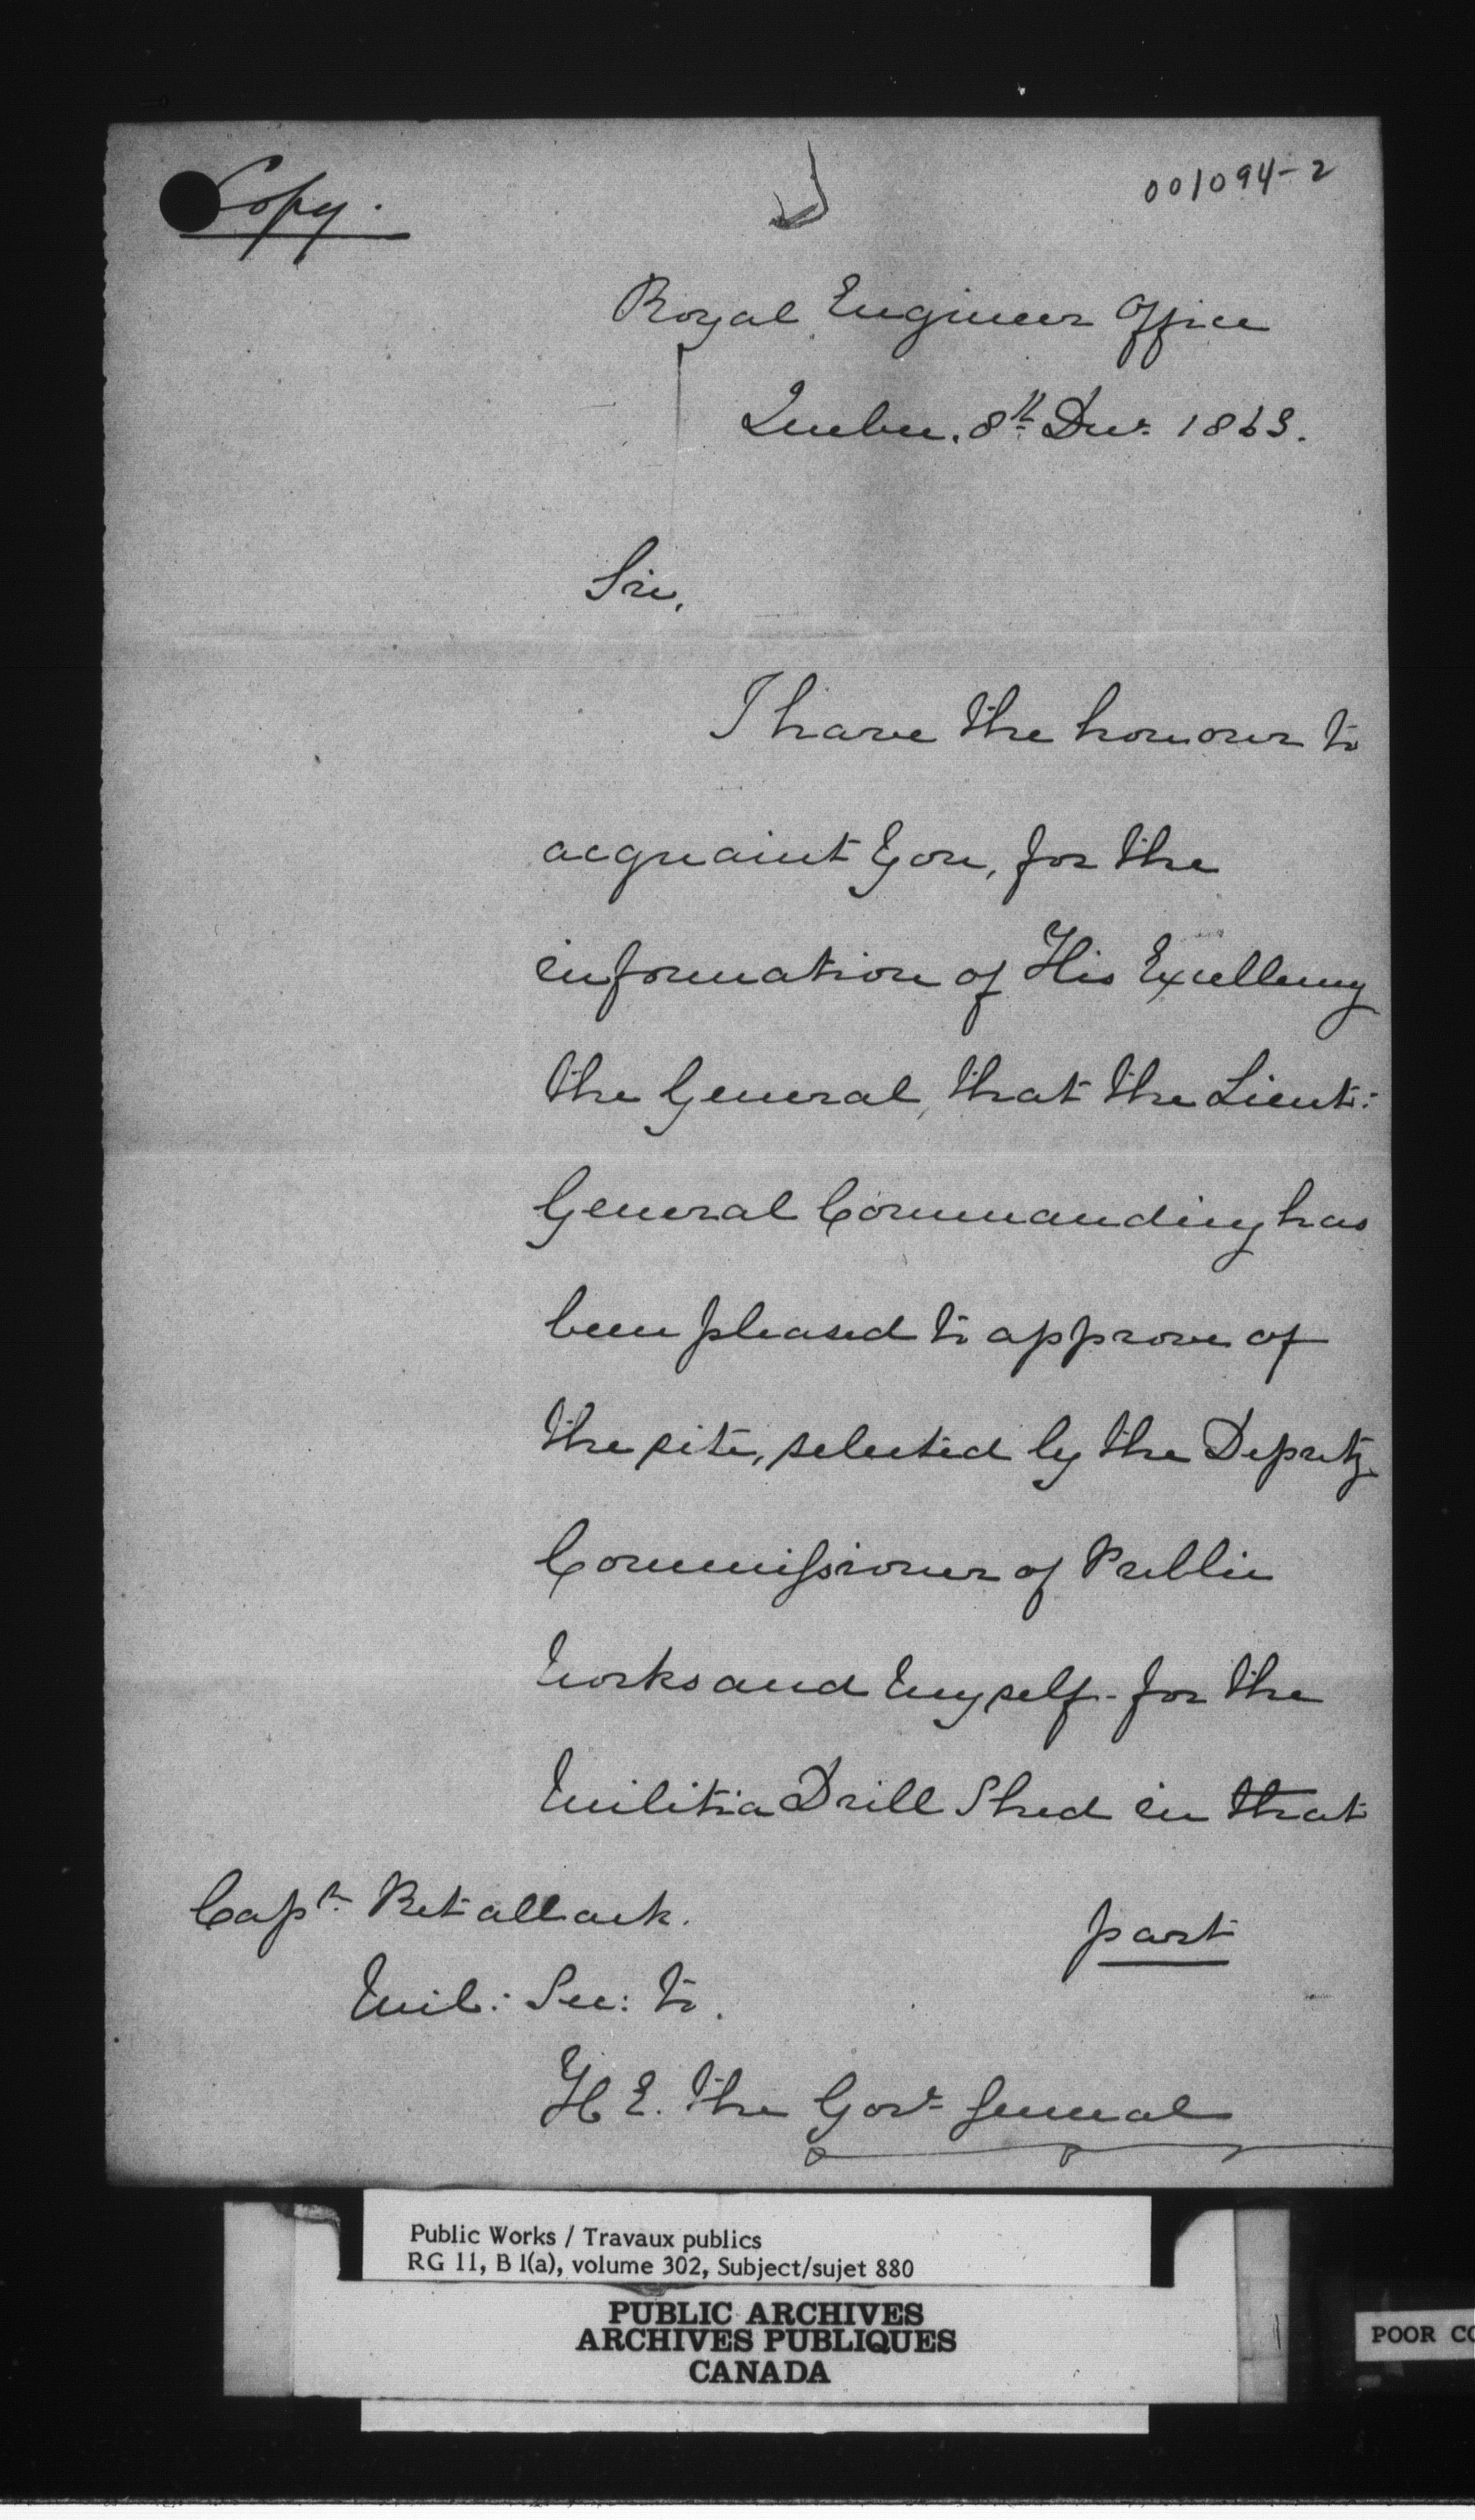 Copy.
001094-2
Royal Engineer Office
Quebec. 8th Decr. 1863.
Sir,
I have the honour to
acquaint you, for the
information of His Excellency
the General, that the Lieut:
General Commanding has
been pleased to approve of
the site, selected by the Deputy
Commissioner of Public
Works and myself - for the
Militia Drill Shed in that
part
Capt. Retallack.
Mil: Sec: to.
H E. the Govr. General
Public Works / Travaux publics
RG 11, B 1(a), volume 302, Subject/sujet 880
PUBLIC ARCHIVES
ARCHIVES PUBLIQUES
CANADA
POOR CO